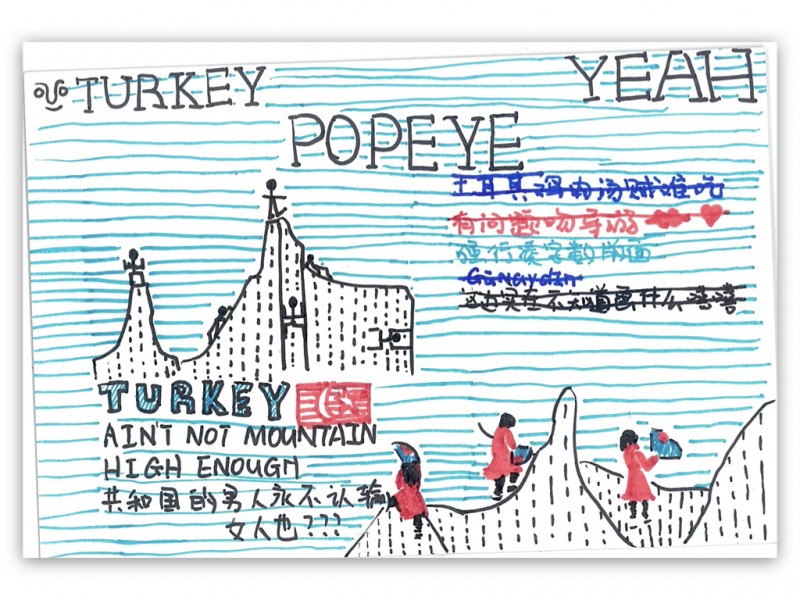 TURKEY
YEAH
POPEYE
土耳其的汤贼难吃
有问题吻导游
强行凑字数版面
Günaydın
这边实在不知道画什么嘻嘻
TURKEY
AIN'T NOT MOUNTAIN
HIGH ENOUGH
共和国的男人永不认输
女人也???